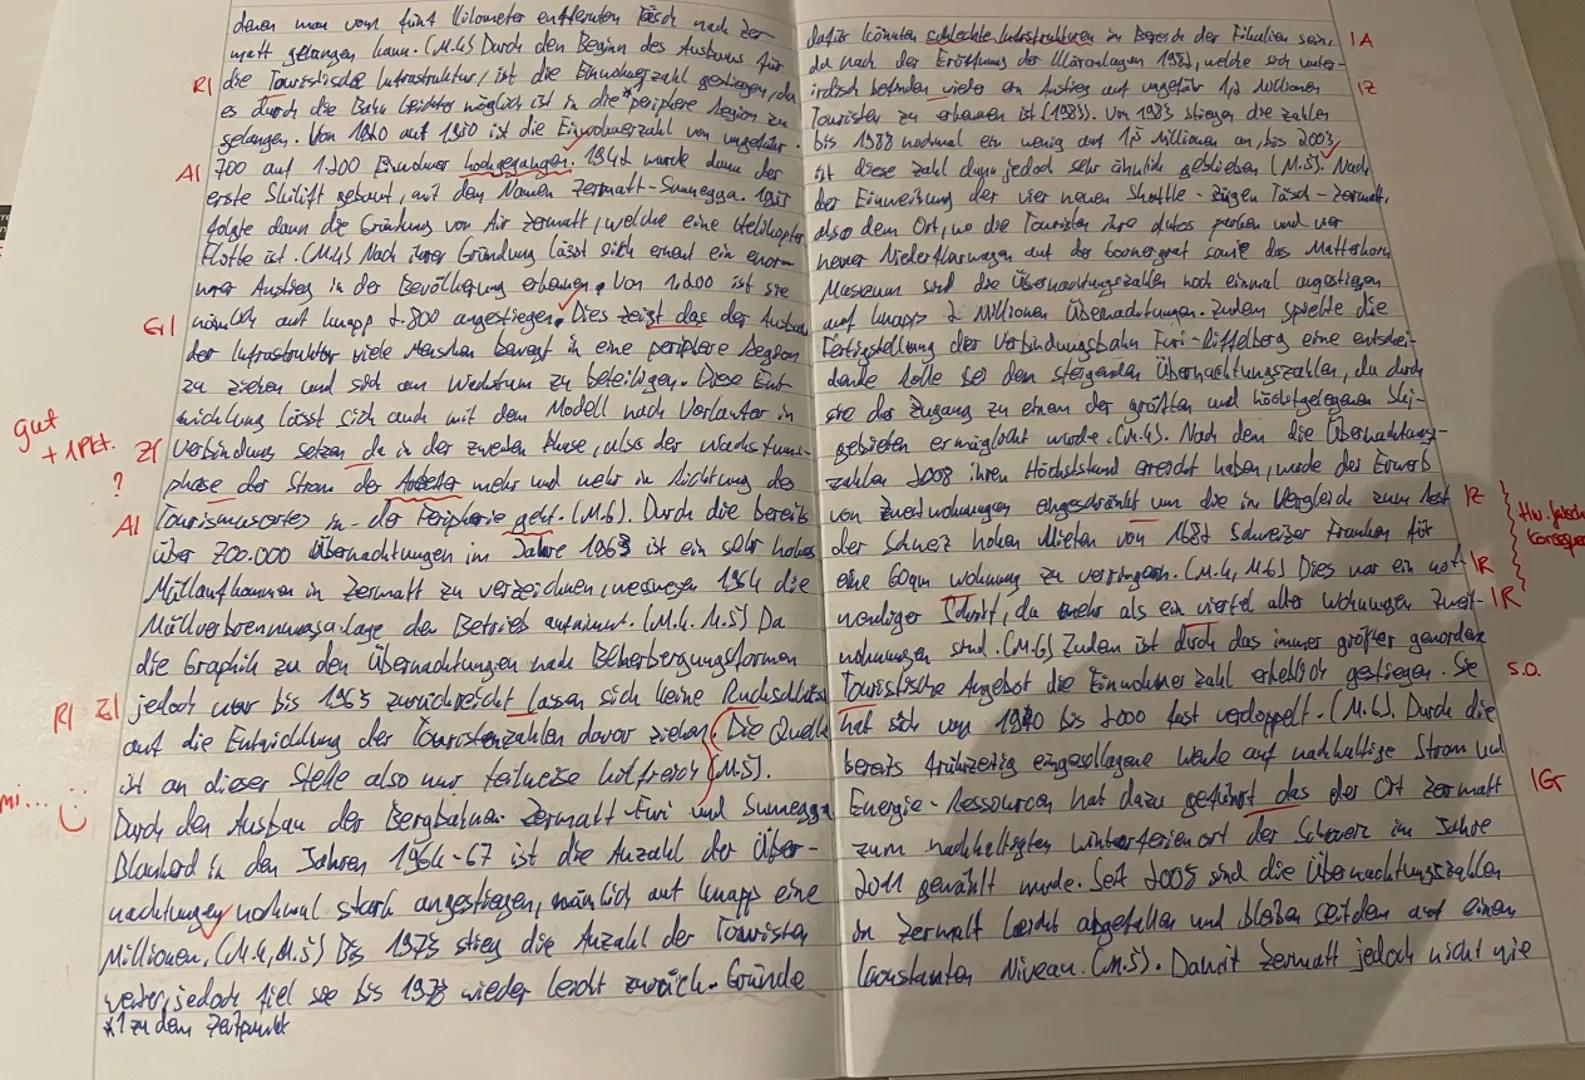 denen man vom fünf Kilometer entfernten Täsch nach Zer-
matt gelangen kann. (M.4) Durch den Beginn des Ausbaus für
R| die Touristische Infrastruktur, ist die Einwohnerzahl gestiegen, da
es durch die Bahn leichter möglich ist in die *1 periphere Region zu
gelangen. Von auf 1930 ist die Einwohnerzahl von ungefähr
A| 700 auf 1.200 Einwohner hochgegangen. 1942 wurde dann der
erste Skilift gebaut, mit dem Namen Zermatt-Sunnegga.
folgte dann die Gründung von Air Zermatt, welche eine Helikopter
Flotte ist. (M.4) Nach ihrer Gründung lässt sich erneut ein enorm-
Anstieg in der Bevölkerung erkennen. Von 1.200 ist sie
Gr| nämlich auf knapp 2.800 angestiegen. Dies zeigt das der Ausbau
der Infrastruktur viele Menschen bewegt in eine periphere Region
zu ziehen und sich am Wachstum zu beteiligen. Diese Ent-
wicklung lässt sich auch mit dem Modell nach Vorlaufer in
gut + 1 Pkt. Z| Verbindung setzen da in der zweiten Phase, also der Wachstums-
? phase der Strom der Arbeiter mehr und mehr in Richtung des
A| Tourismusortes in der Peripherie geht. (M.6). Durch die bereits
über 700.000 Übernachtungen im Jahre 1963 ist ein sehr hohes
Müllaufkommen in Zermatt zu verzeichnen, weswegen 1964 die
Müllverbrennungsanlage den Betrieb aufnimmt. (M.4. M.5) Da
die Graphik zu den Übernachtungen nach Beherbergungsformen
R| Z| jedoch nur bis 1963 zurückreicht lassen sich keine Rückschlüsse
auf die Entwicklung der Touristenzahlen davor ziehen. Die Quelle
ist an dieser Stelle also nur teilweise hilfreich (M.5).
Durch den Ausbau der Bergbahnen Zermatt-Furi und Sunnegga
Blauherd in den Jahren 1964-67 ist die Anzahl der Über-
nachtungen nochmal stark angestiegen, nämlich auf knapp eine
Millionen. (M.4, M.5) Bis 1973 stieg die Anzahl der Touristen
weiter, jedoch fiel sie bis 1978 wieder leicht zurück. Gründe
*1 zu dem Zeitpunkt
dafür könnten schlechte Infrastrukturen im Bereich der Filialien sein, |A
da nach der Eröffnung der Kläranlagen 1982, welche sich unter-
irdisch befinden wieder ein Anstieg auf ungefähr 1,2 Millionen |Z
Touristen zu erkennen ist (1983). Von 1983 stiegen die Zahlen
bis 1988 nochmal ein wenig auf 1,5 Millionen an, bis 2003
ist diese Zahl dann jedoch sehr ähnlich geblieben (M.5). Nach
der Einweihung der vier neuen Shuttle-Zügen Täsch-Zermatt,
also dem Ort, wo die Touristen ihre Autos parken und vier
neuer Niederflurwagen auf der Gornergrat sowie das Matterhorn
Museum sind die Übernachtungszahlen noch einmal angestiegen
auf knapp 2 Millionen Übernachtungen. Zudem spielte die
Fertigstellung der Verbindungsbahn Furi-Riffelberg eine entschei-
dende Rolle bei den steigenden Übernachtungszahlen, da durch
sie der Zugang zu einem der größten und höchstgelegenen Ski-
gebieten ermöglicht wurde. (M.4). Nach dem die Übernachtungs-
zahlen 2008 ihren Höchststand erreicht haben, wurde der Erwerb
von Zweitwohnungen eingeschränkt um die im Vergleich zum Rest |Z
der Schweiz hohen Mieten von 1682 Schweizer Franken für
eine 60qm Wohnung zu verringern. (M.4, M.6) Dies war ein not- |R
wendiger Schritt, da mehr als ein viertel aller Wohnungen Zweit- |R
wohnungen sind. (M.6) Zudem ist durch das immer größer gewordene
Touristische Angebot die Einwohnerzahl erheblich gestiegen. Sie s.o.
hat sich von bis 2000 fast verdoppelt. (M.6). Durch die
bereits frühzeitig eingeschlagene Wende auf nachhaltige Strom und
Energie-Ressourcen hat dazu geführt das der Ort Zermatt |Gr
zum nachhaltigsten Winterferienort der Schweiz im Jahre
2011 gewählt wurde. Seit 2008 sind die Übernachtungszahlen
in Zermatt leicht abgefallen und bleiben seitdem auf einem
konstanten Niveau. (M.5). Damit Zermatt jedoch nicht wie